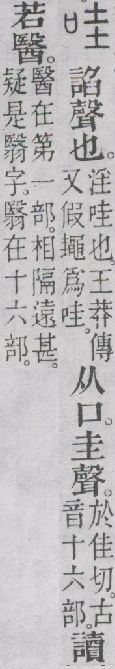 哇 諂聲也。淫哇也。王莽傳又假䵷爲哇。从口。圭聲。於佳切。古音十六部。讀
若醫。醫在第一部。相隔遠甚。疑是翳字。翳在十六部。